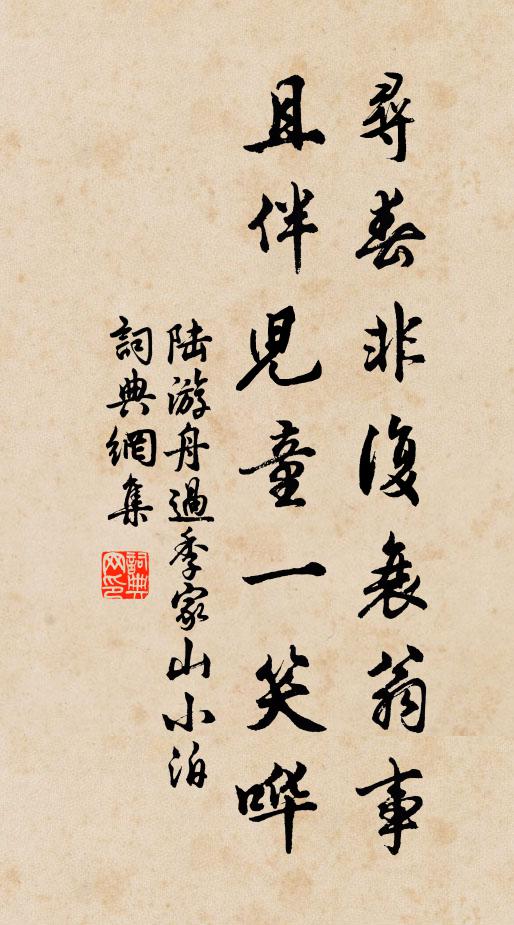 尋春非復衰翁事
且伴兒童一笑哗
陆游舟過季家山小泊
詞典網集
詞典網印